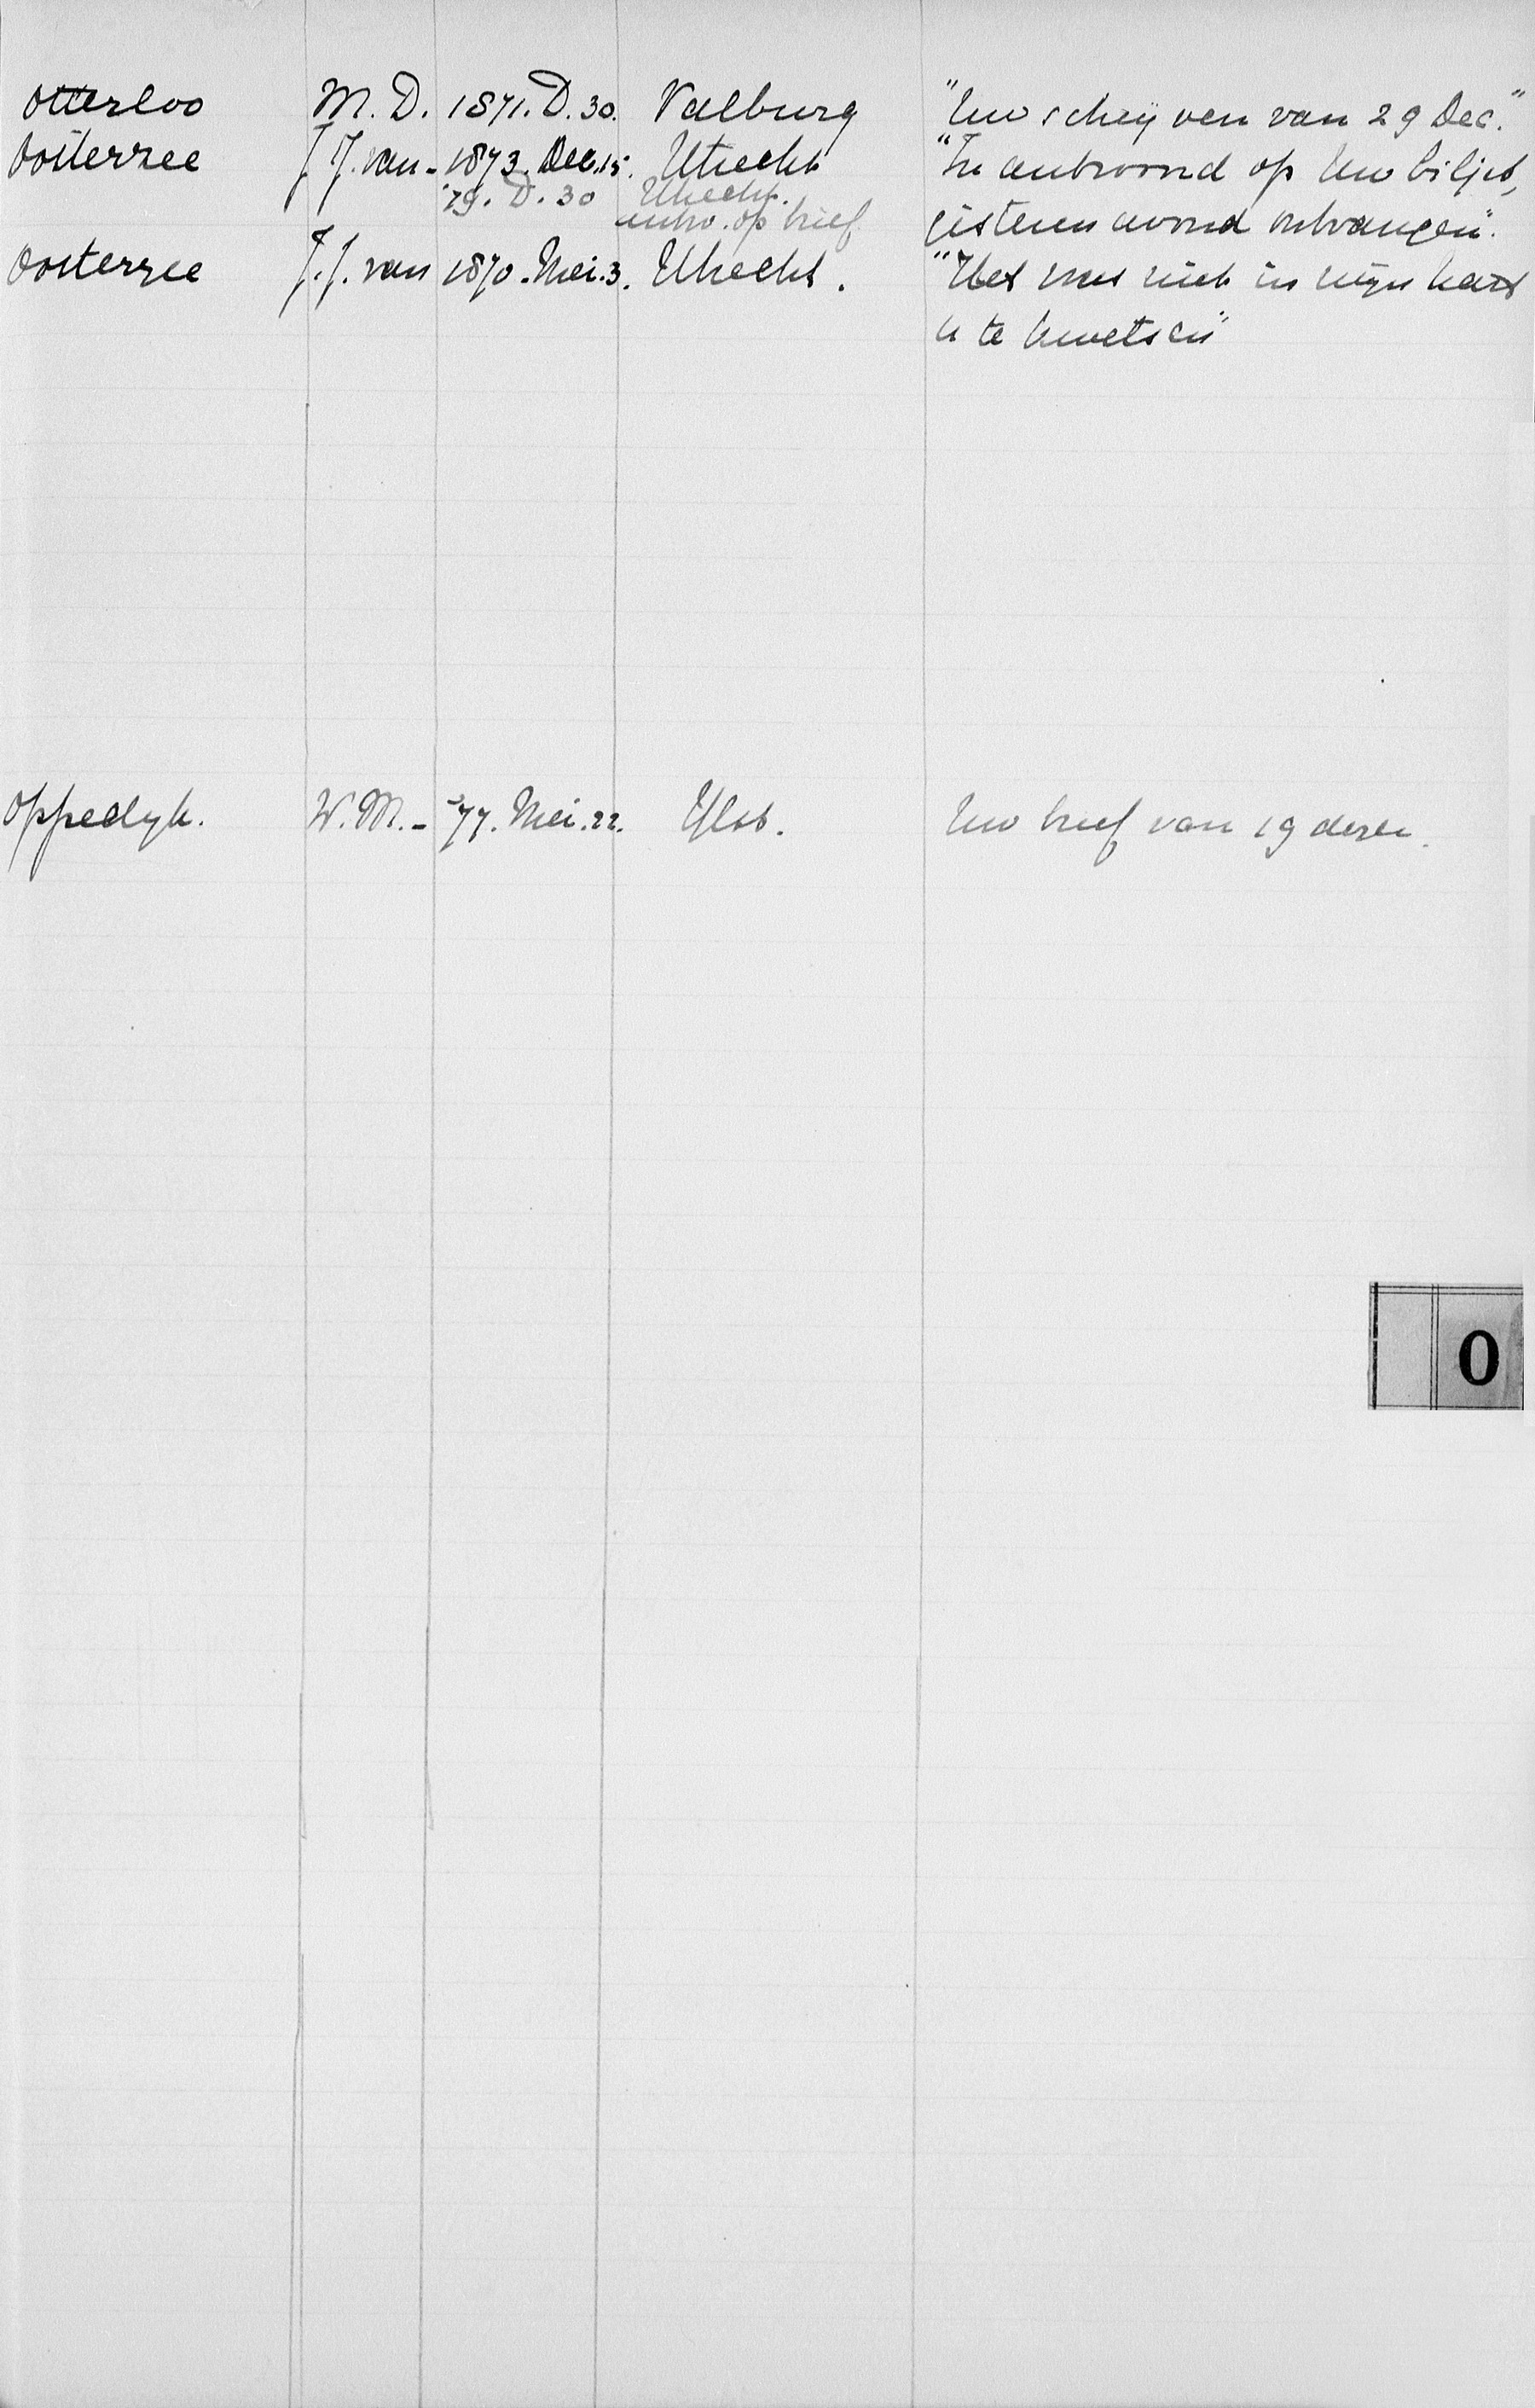 Otterloo M. D. 1871. D. 30. Valburg "Uw schrijven van 29 Dec."
Oosterzee J. J. van - 1873. Dec. 15. Utrecht "In antwoord op Uw biljet,
'79. D. 30 Utrecht.
antw. op brief
gisteren avond ontvangen".
Oosterzee J. J. van 1870. Mei. 3. Utrecht. "Het was niet in mijn hart
u te kwetsen"
Oppedyk. W. M. - '77. Mei. 22. Ylst. Uw brief van 19 dezer.
O